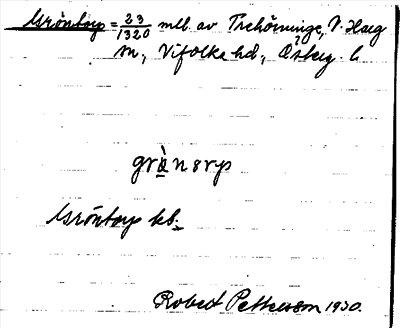 Gröntorp = 23/1320 mtl. av Trehörninge, V. Harg
sn, Vifolka hd, Österg. l.
grànsrp
Gröntorp kb.
Robert Pettersson 1930.